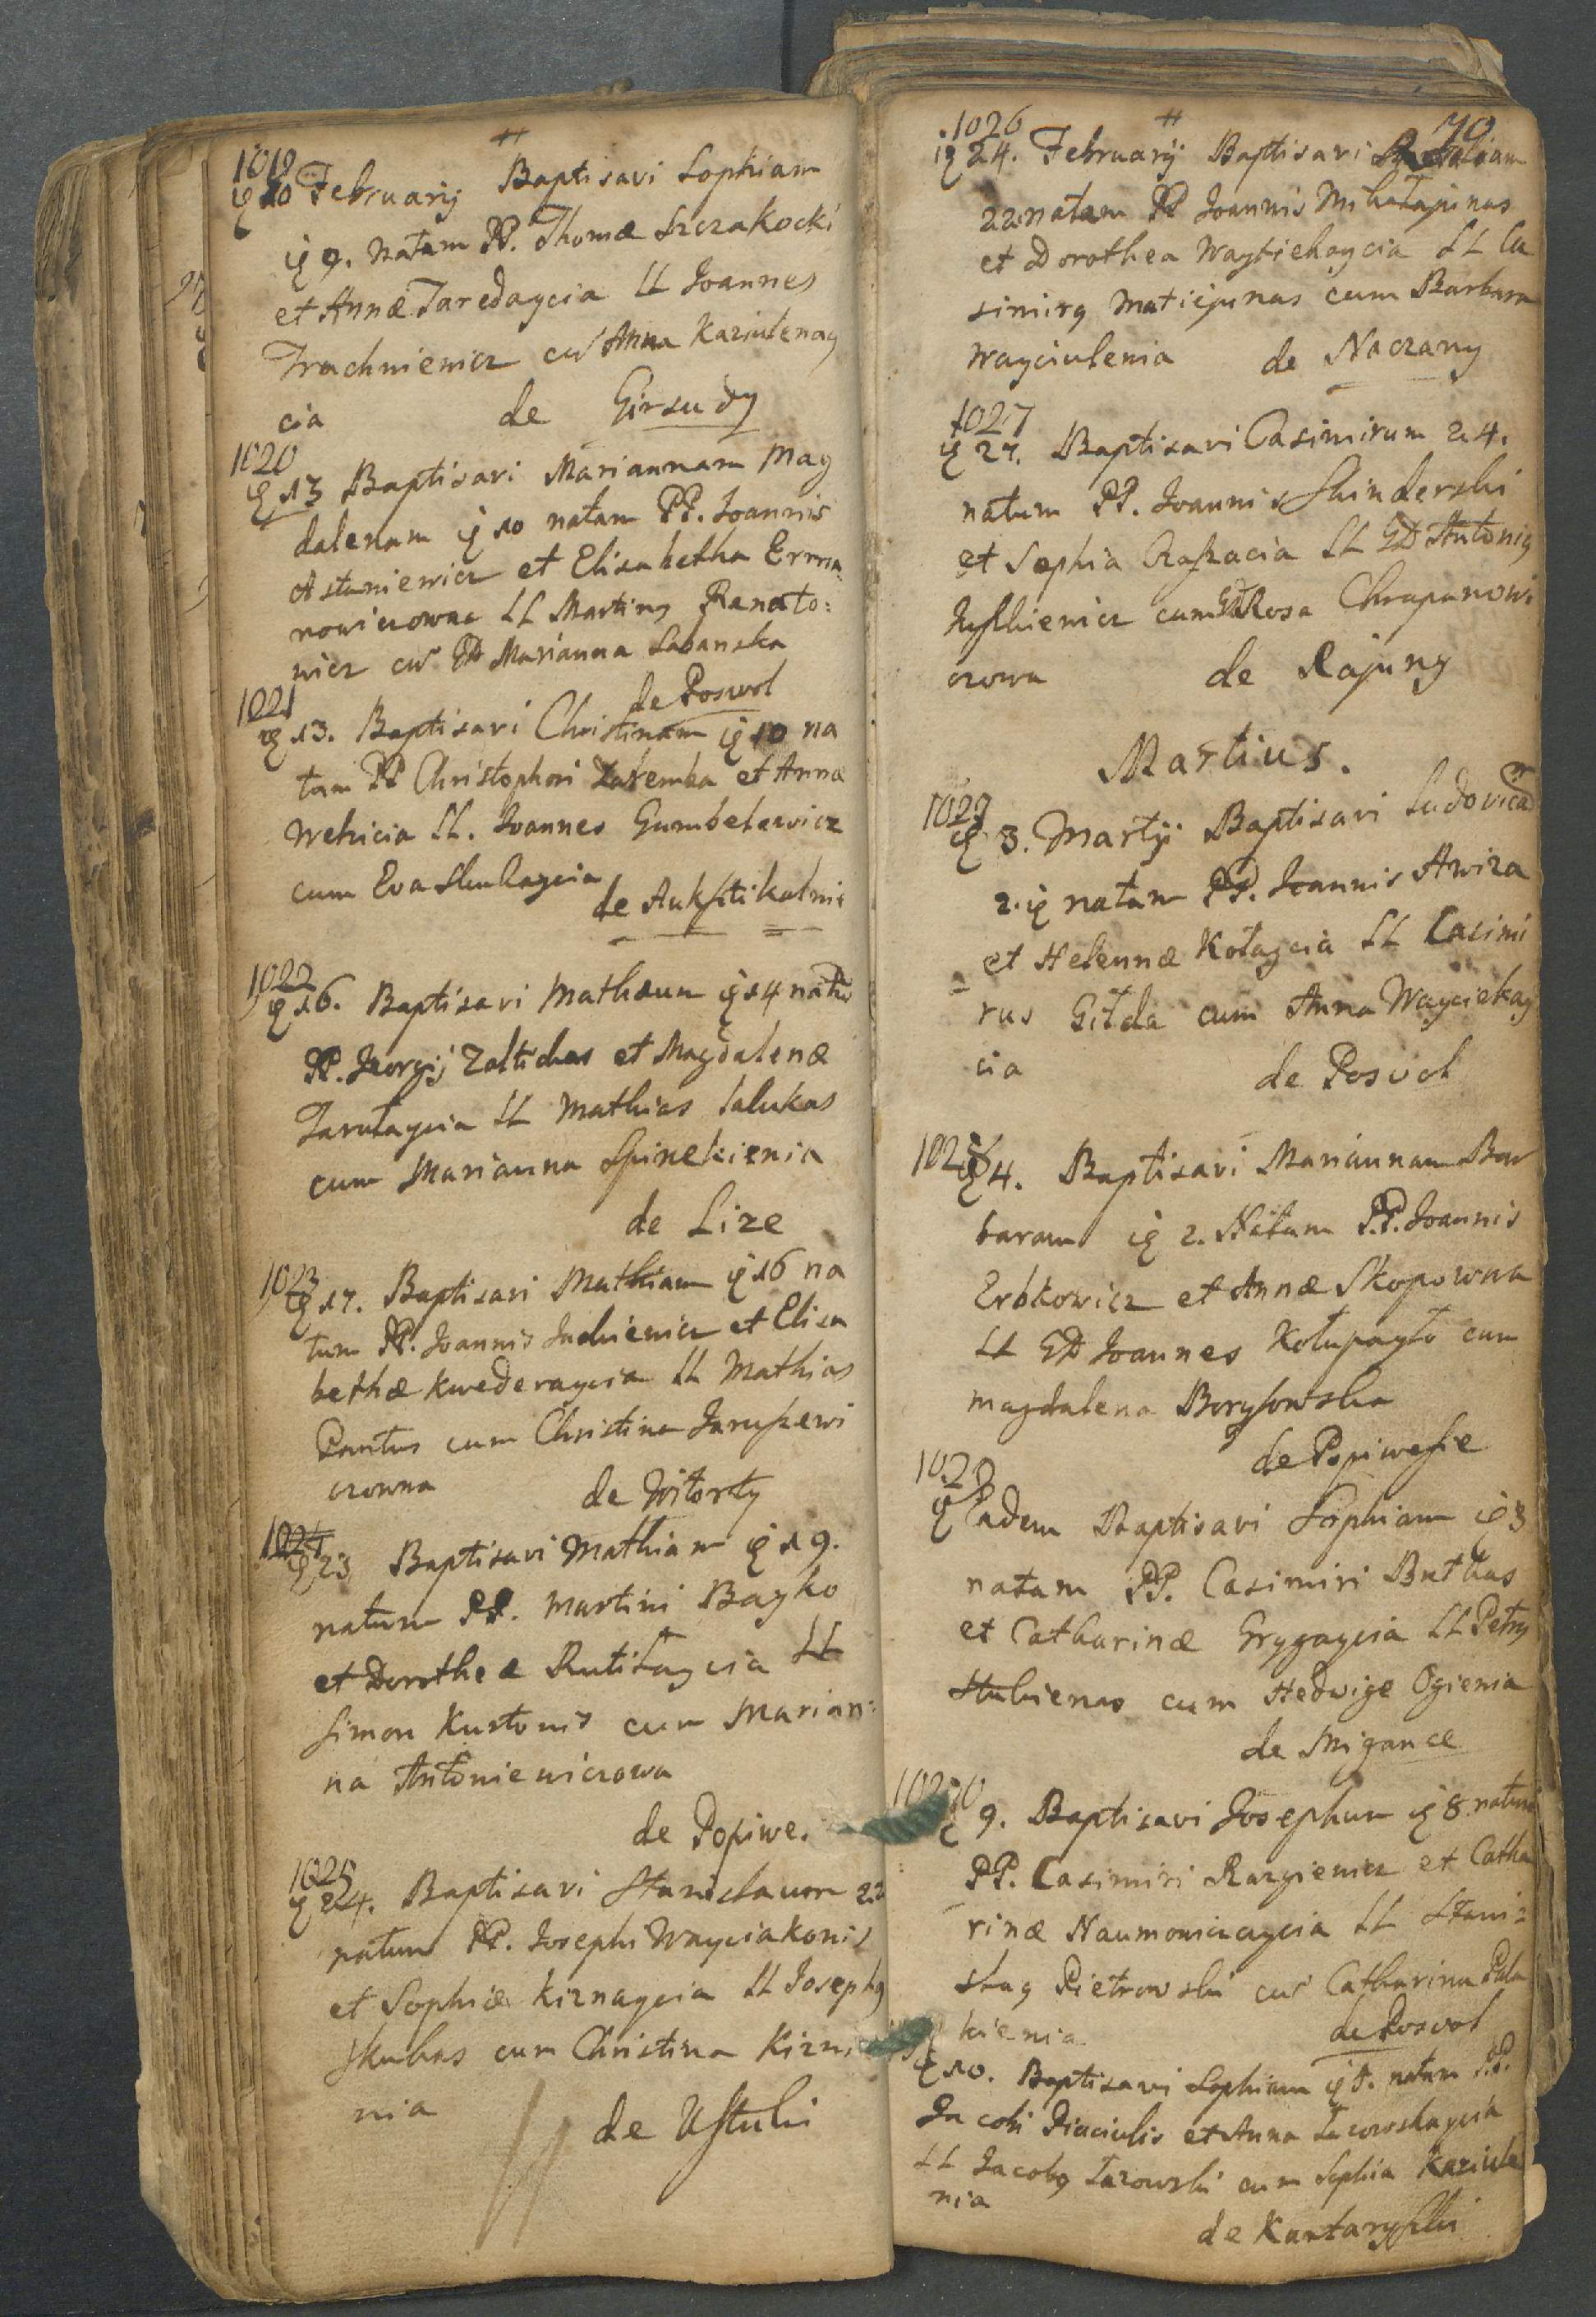 1019
10 February Baptisavi Sophiam
9. natam PP. Thomæ Szczakocki
et Annæ Taredaycia LL Joannes
Trachniewicz cu Anna Kaziulenay
cia de Girsudy
1020
13 Baptisavi Mariannam Mag
dalenam 10 natam PP. Joannis
Astaniewicz et Elisabetha Erma
nowiczowna LL Martinq Renato:
wicz cu GD Marianna Labanska
de Poswol
1021
13. Baptisavi Christinam 10 na
tam PP Christophori Zaremba et Annæ
Wehicia LL. Joannes Gumbelewicz
cum Eva Skukaycia
de Aukſztikalnis
1022
16. Baptisavi Mathæum 14 natu
PP. Georgij Zoltickas et Magdalenæ
Tarutaycia LL Mathias Salukas
cum Marianna Spinekienia
de Lize
1023
17. Baptisavi Mathiam 16 na
tum PP. Joannis Juchiewicz et Elisa
bethæ Kwederaycia LL Mathias
Pantus cum Christina Jaruszewi
czowna de Witorty
1024
23 Baptisavi Mathiam 19.
natum PP. Martini Bayko
et Dorotheæ Rutiłaycia LL
Simon Kurtonis cum Marian:
na Antoniewiczowa
de Popiwe.
1025
24. Baptisavi Stanislaum 22
natum PP. Josephi Wayciakonis
et Sophiæ Kiznaycia LL Josephq
Skubas cum Christina Kizni
nia de Uſtuki
1026 70
24. February Baptisavi
22 natam PP Joannis Mikałajunas
et Dorothea Waytiekaycia LL Ca
simirq Maticjunas cum Barbara
Wayciulenia de Naczany
1027
27. Baptisavi Casimirum 24.
natum PP. Joannis Skinderski
et Sophia LL GD Antoniq
cum GD Rosa Chrapanowi
czowa de Rajuny
Martius.
1027
3. Martij Baptisavi Ludovica
2. natam PP. Joannis Awiza
et Helennæ Kołaycia LL Casimi
rus Giłda cum Anna Wayciekay
cia de Posvol
1028
4. Baptisavi Mariannam Bar
baram 2. Natam P.P. Joannis
Erbkowicz et Annæ Skopowna
LL GD Joannes Kołupayło cum
Magdalena Borysowska
de Popiweſie
1029
Eadem Baptisavi Sophiam 3
natam PP. Casimiri Butkas
et Catharinæ Grygaycia LL Petrq
Stukienas cum Hedwige Ogienia
de Migance
9. Baptisavi Josephum 8 natum
PP. Casimiri Razgiewicz et Catha
rinæ Naumowiczaycia LL Stani:
slaq Pietrowski cu Catharina Pala
kienia de Posvol
10. Baptisavi Sophiam natam P.P.
Jacobi Diaciulis et Anna Lazowskaycia
LL Jacobq Lazowski cum Sophia Kaziule
nia
de Kantaryſzki